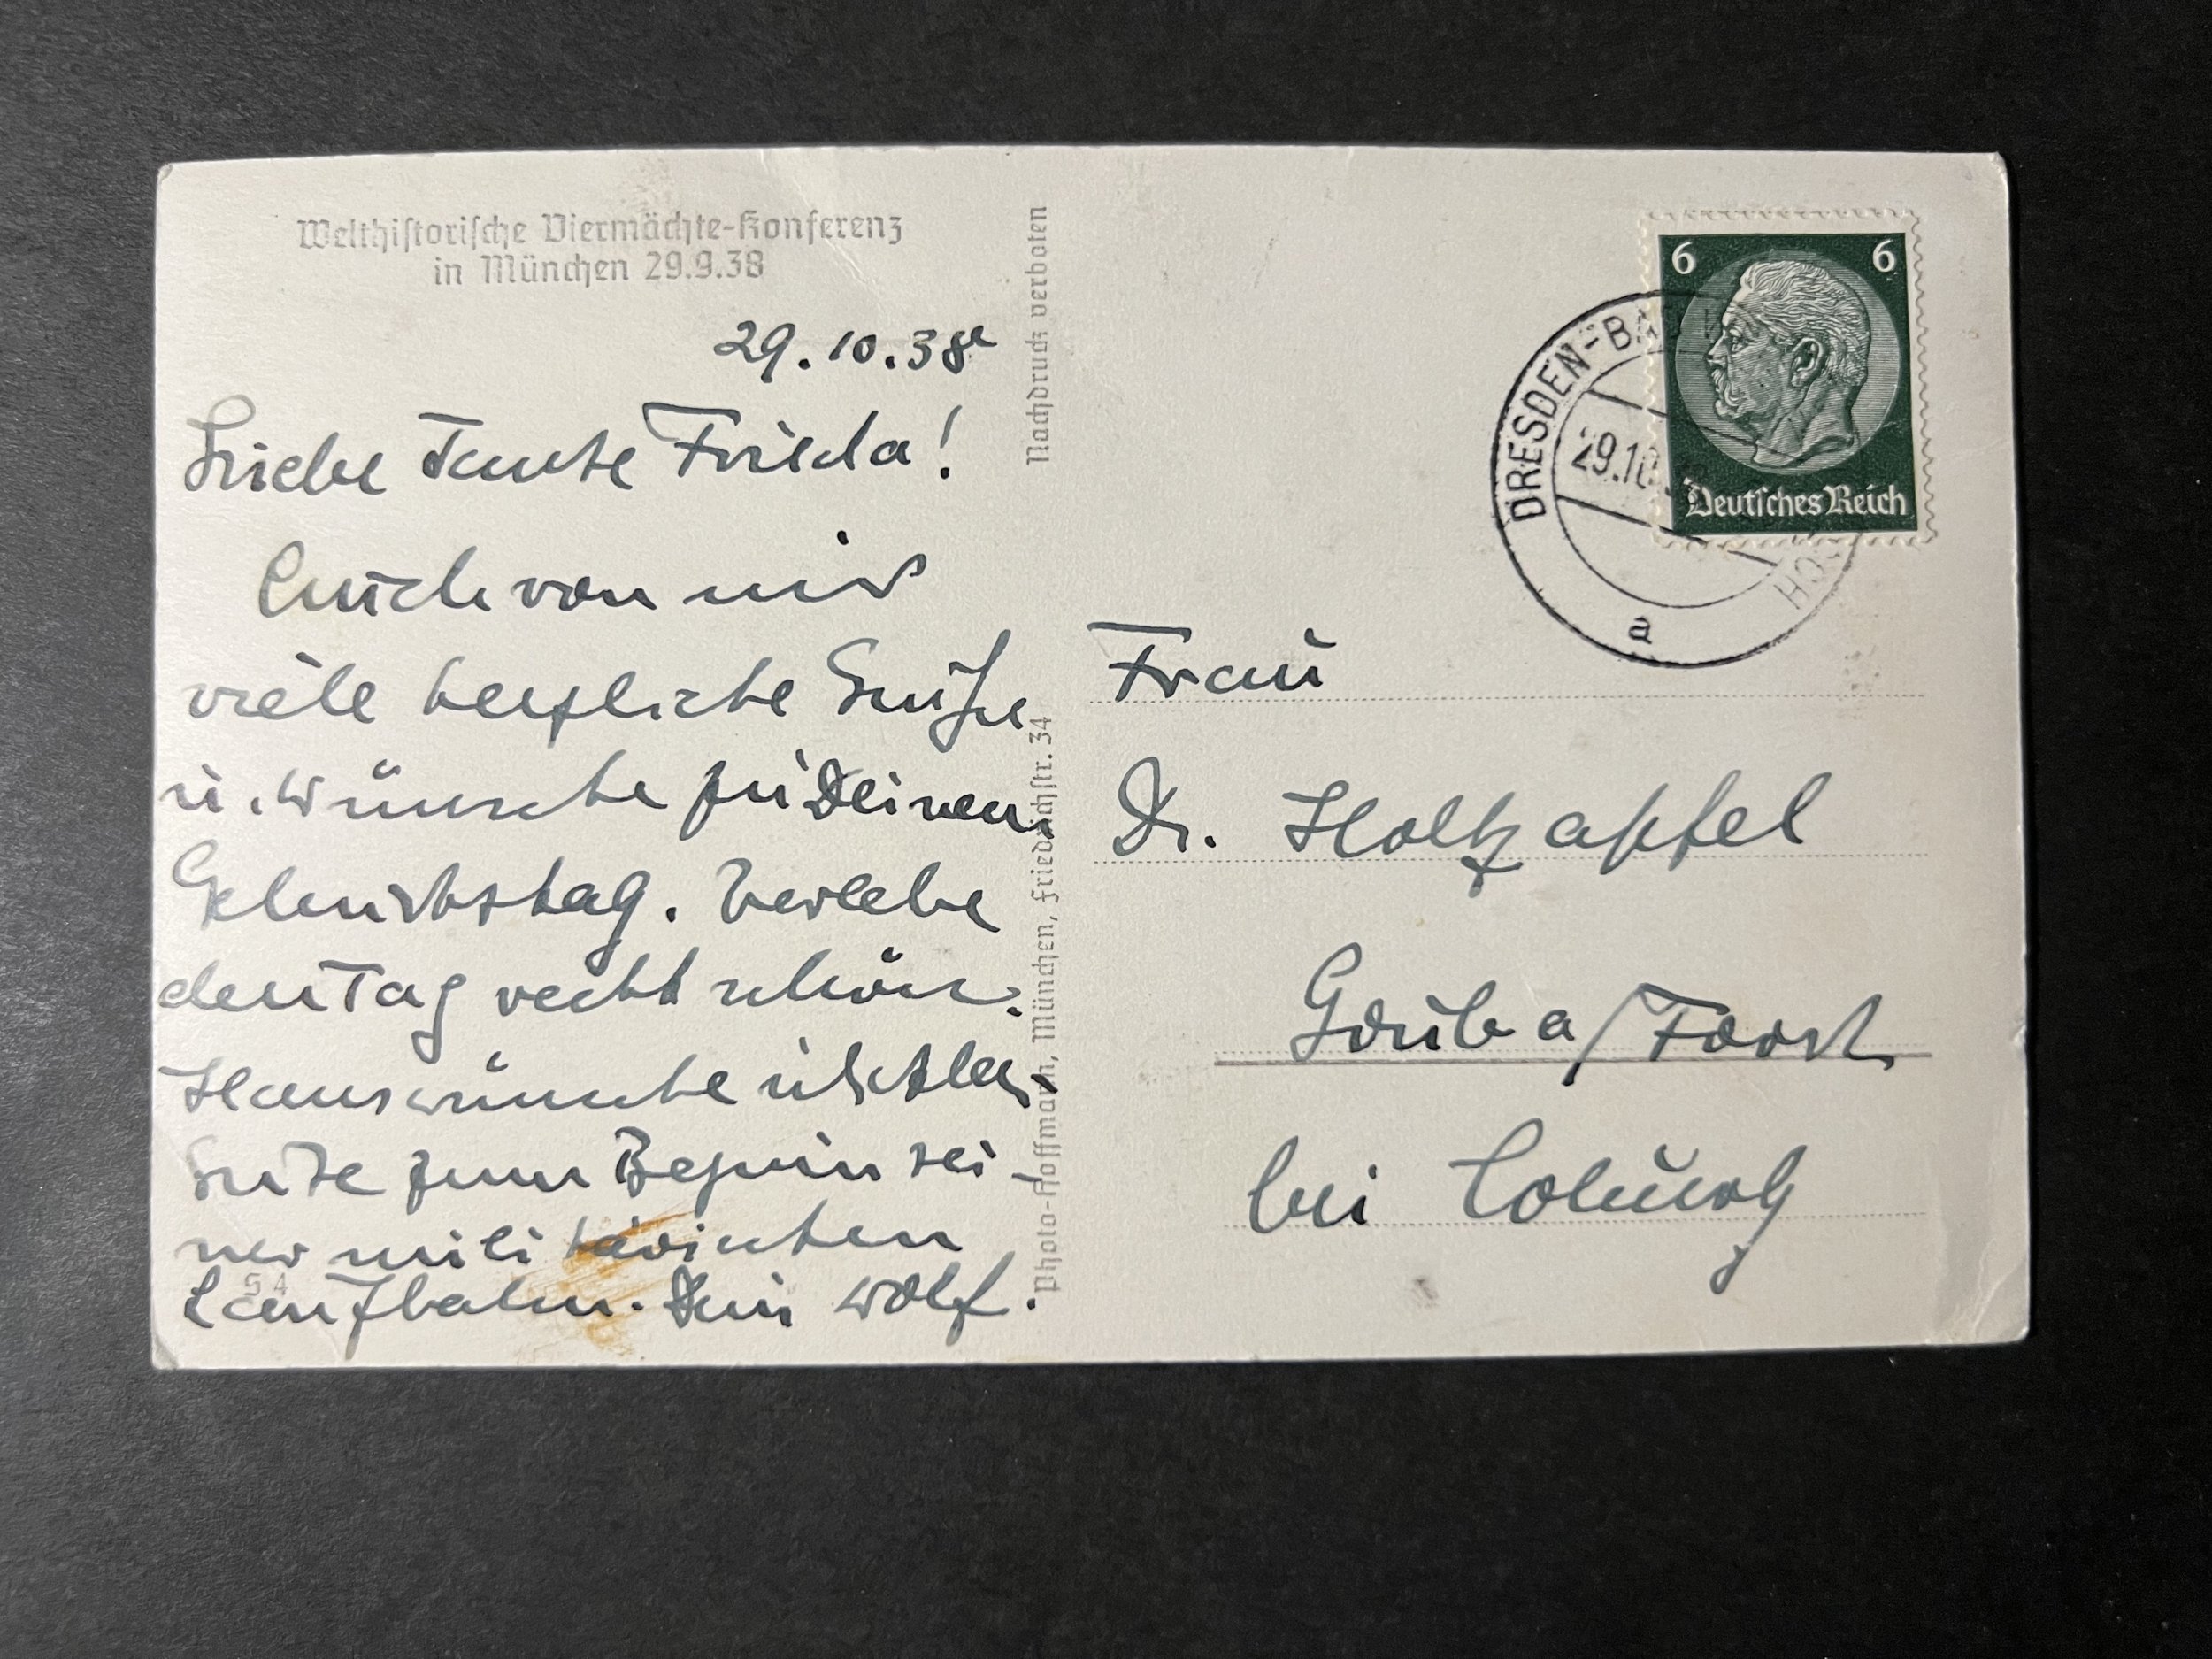 Welthistorische Viermächte-Konferenz
in München 29.9.38
29.10.38
Liebe Tante Frieda!
Auch von mir
viele herzliche Grüße
u. Wünsche zu Deinem
Geburtstag. Verlebe
den Tag recht schön.
Hans wünsche ich alles
Gute zum Beginn sei-
ner militärischen
Laufbahn. Dein Wolf.
54
Nachdruck verboten
Photo-Hoffmann, München, Friedrichstr. 34
6 6
Deutsches Reich
DRESDEN-BA
29.10.
a
Frau
Dr. Holtzapfel
Grub a/Forst
bei Coburg